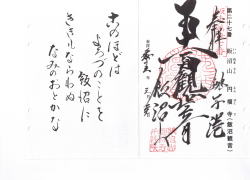 第二十七番 飯沼山 円福寺(飯沼観音)
奉拝
銚子港
十一面観世音
飯沼山
このほどは
よろづのことを
飯沼に
きゝもならわぬ
なみのおとかな